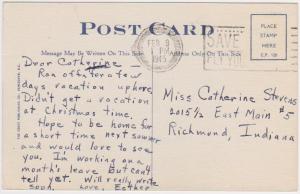 POST CARD
Message May Be Written On This Side
FEB 9
1 PM
1945
SAVE
PLACE
STAMP
HERE
Dear Catherine -
Ran off for a few
days vacation up here
Didn't get a vacation
at Christmas time.
Hope to be home for
a short time next summer
and would love to see
you. Im working on a
month's leave but can't
tell yet. Will really write
soon. Love, Esther
Miss Catherine Stevens
2015 1/2 East Main #5
Richmond, Indiana